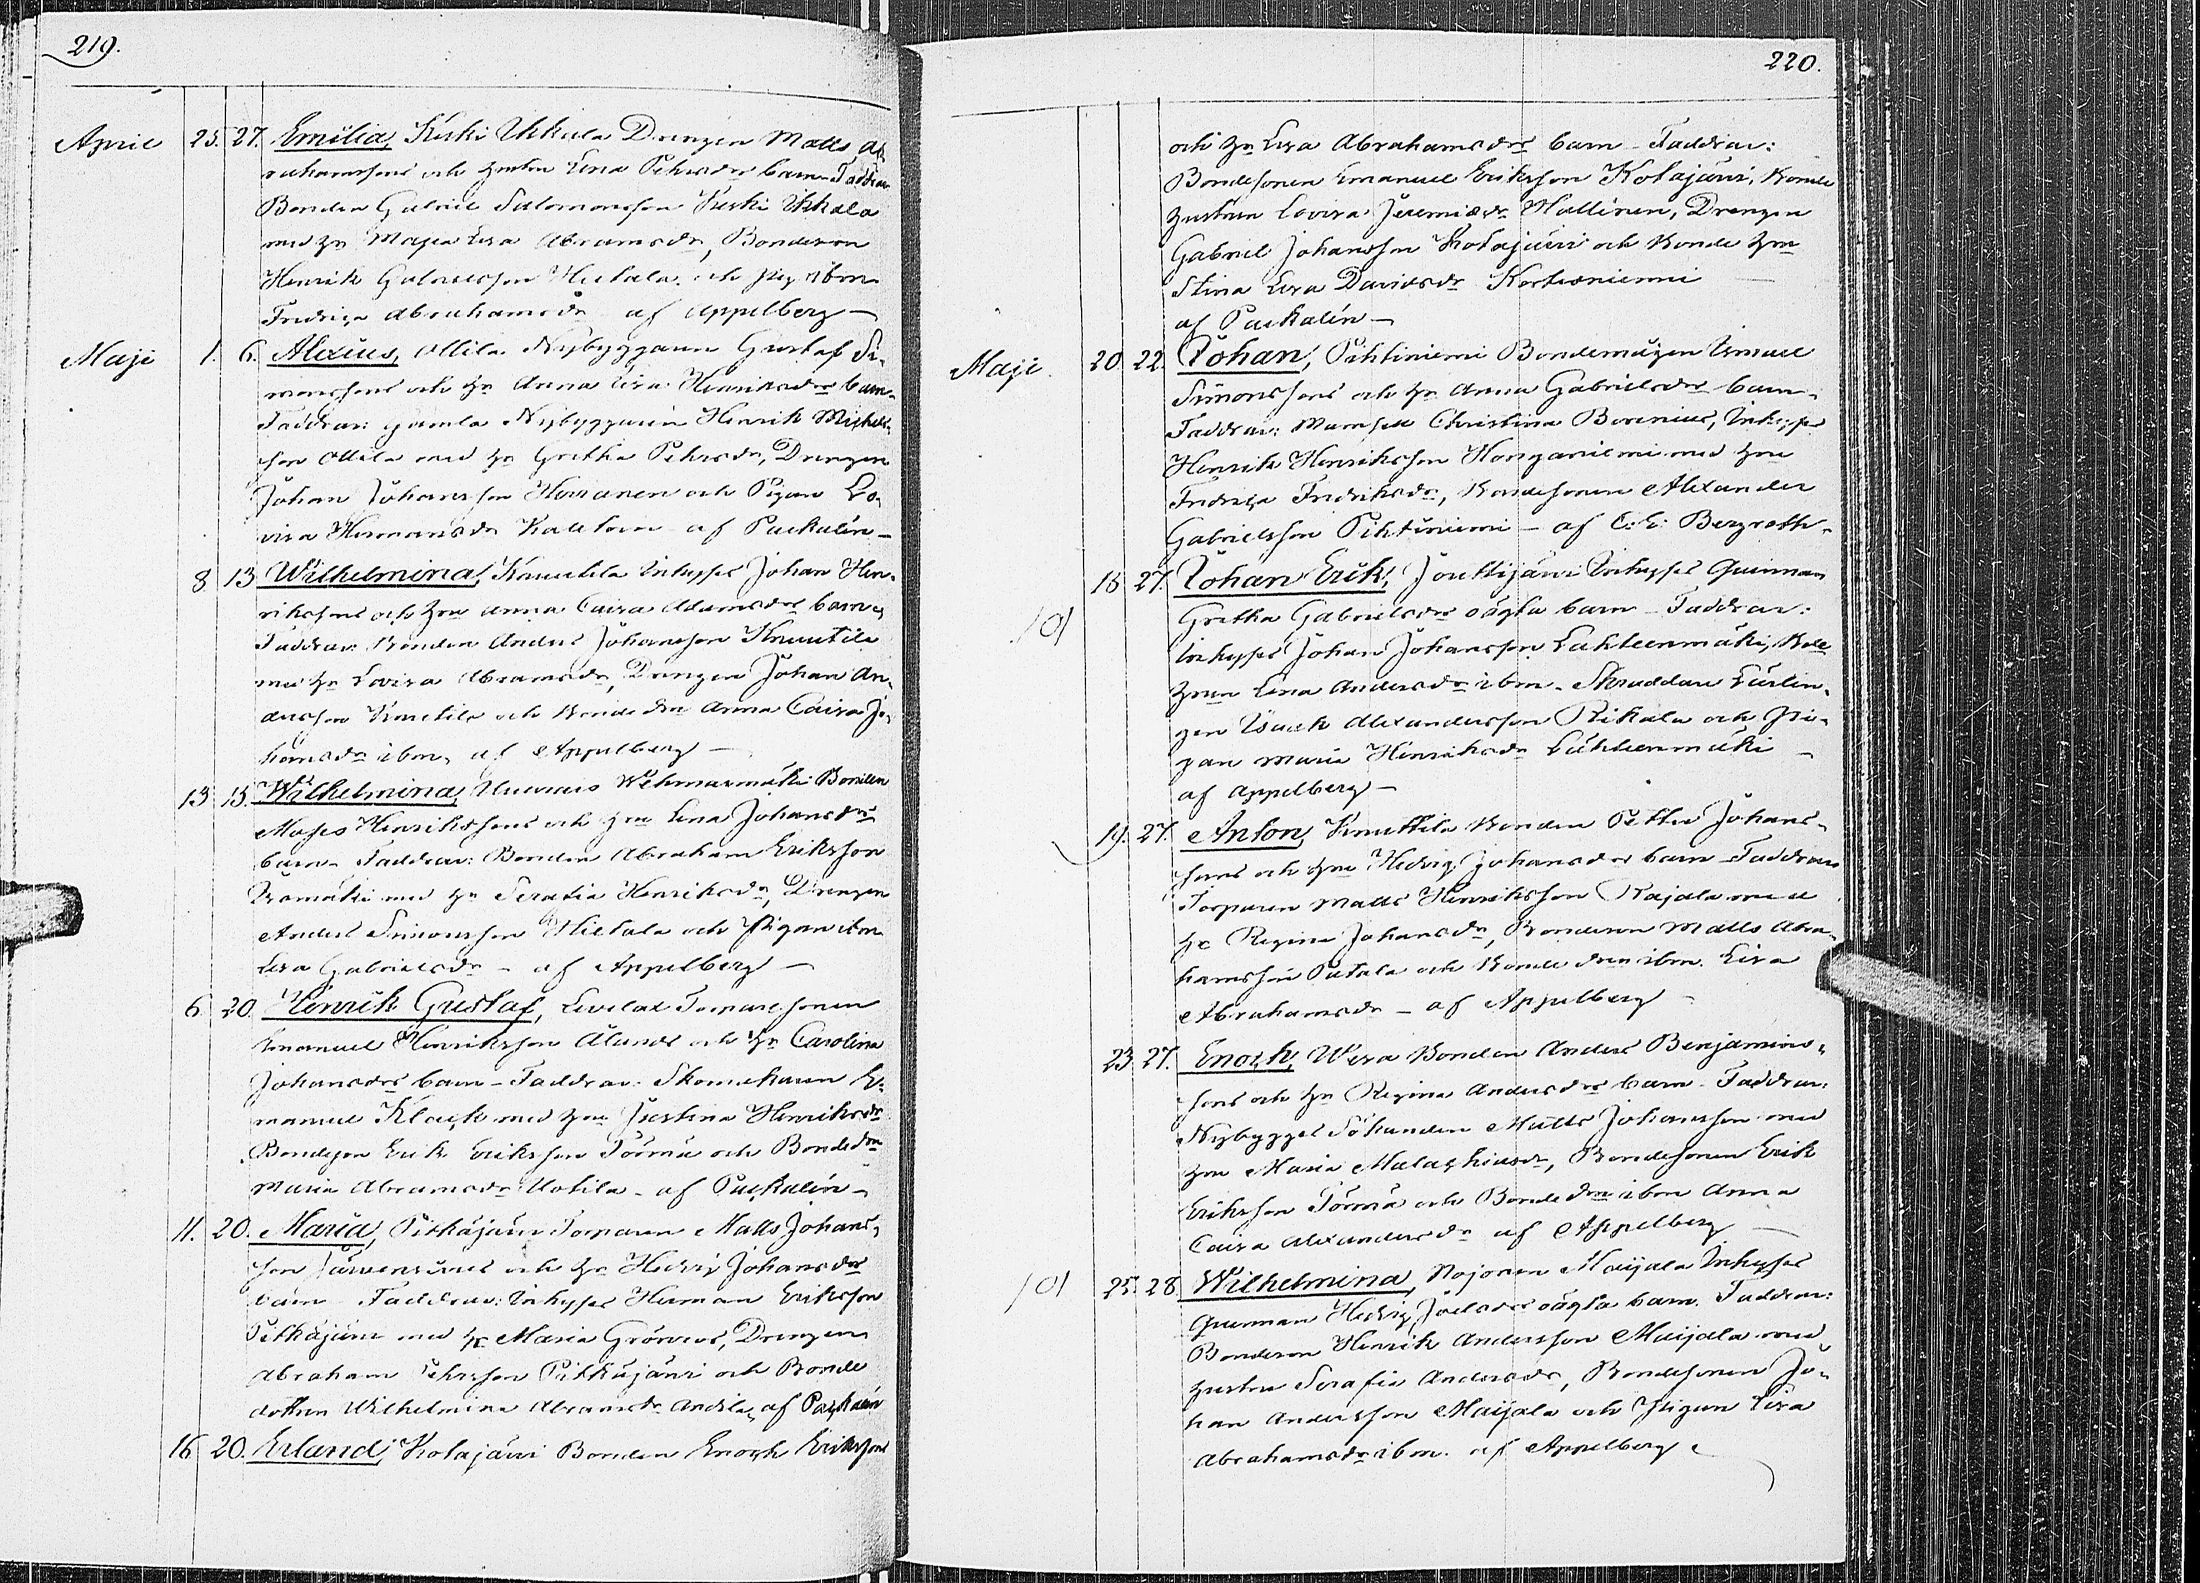 219.
April 25. 27. Emilia, Keski Ikkala Drengen Matts Ab,
rahamssons och hustrun Lena Pehrsdrs barn. Faddrar
Bonden Gabriel Salomonsson Keski Ikkala
med h. Maja Lisa Abramsdr, Bondeson
Henrik Gabrielsson Hietala och pig. ibm
Fredrica Abrahamsdr af Appelberg –
Maji 1. 6. Alexius, Ollila Nybyggaren Gustaf Si-
monssons och h. Anna Lisa Henriksdrs barn.
Faddrar: gamla Nybyggaren Henrik Michels-
son Ollila med h. Gretha Pehrsdr, Drengen
Johan Johansson Herranen och Pigan Lo-
visa Hermansdr af Packalén –
8 13 Wilhelmina, Knuutila Inhyses Johan Hen-
rikssons och hru Anna Caisa Adamsdrs barn,
Faddrar Bonden Anders Johansson Knuutila
med h. Lovisa Abramsdr, Drengen Johan An-
dersson Knutila och Bonde dtn Anna Caisa Jo-
hansdr ibm, af Appelberg –
13 15. Wilhelmina, Wehmasmäki Bonden
Moses Henrikssons och hru Lena Johansdrs
barn – Faddrar: Bonden Abraham Eriksson
med h. Serafia Henriksdr, Drengen
Anders Simonsson Hietala och Pigan ibm
Lisa Gabrielsdr – af Appelberg –
6 20. Henrik Gustaf, Torparesonen
Emanuel Henriksson Ålunds och h. Carolina
Johansdrs barn – Faddrar: Skomakaren E-
manuel Klack med hru Justina Henriksdr
Bondeson Erik Eriksson Törmä och Bondedtn
Maria Abramsdr Uotila – af Packalén –
11. 20. Maria, Pitkäjärvi Torparen Matts Johans-
son och h. Hedvig Johansdrs
barn – Faddrar: Inhyses Herman Eriksson
Pitkäjärvi med h. Maria Grönroos, Drengen
Abraham Pehrsson Pitkäjärvi och Bonde
dottren Wilhelmina Abramsdr Andila, af Packalén
16 20. Erland, Kotajärvi Bonden Enoch Erikssons
220.
och h. Lisa Abrahamsdrs barn – Faddrar:
Bondesonen Emanuel Eriksson Kotajärvi, Bonde
hustrun Lovisa Jeremiædr Hallinen, Drengen
Gabriel Johansson Kotajärvi och Bonde hru
Stina Lisa Davidsdr Kortesniemi –
af Packalén –
Maji 20. 22. Johan, Pihtiniemi Bondemågen Ismael
Simonssons och h. Anna Gabrielsdrs barn,
Faddrar: Mamsell Christina Borenius, Inhyses
Henrik Henriksson Honganiemi med hru
Fredrica Fredriksdr, Bondesonen Alexander
Gabrielsson Pihtiniemi – af C. E. Bergroth –
18 27. Johan Erik, Jouttijärvi Inhyses Quinnan
Gretha Gabrielsdrs oägta barn – Faddrar:
Inhyses Johan Johansson Lähteenmäki, Bde
hrun Lena Andersdr ibm – Skräddare Lärlin-
gen Isaak Alexandersson Rikala och Pi-
gan Maria Henriksdr Lähteenmäki –
af Appelberg –
19. 27. Anton, Knuttila Bonden Petter Johans-
sons och hru Hedvig Johansdrs barn – Faddrar
Torparen Matts Henriksson Rajala med
h. Regina Johansdr, Bondeson Matts Abra-
hamsson och Bonde dtren ibm. Lisa
Abrahamsdr – af Appelberg –
23 27. Enoch, Wesa Bonden Anders Benjamins-
sons och h. Regina Andersdrs barn – Faddrar:
Nybygges Sökanden Matts Johansson med
hru Maria Malachiasdr, Bondesonen Erik
Eriksson Törmä och Bonde dtn ibm Anna
Caisa Alexandersdr af Appelberg –
25. 28. Wilhelmina, Maijala Inhyses
Quinnan Hedvig Joelsdrs oägta barn. Faddrar:
Bondeson Henrik Andersson Maijala med
hustru Serafia Andersdr, Bondesonen Jo-
han Andersson Maijala och Pigan Lisa
Abrahamsdr ibm. af Appelberg –